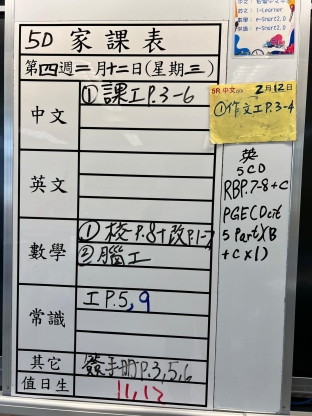 5D 家課表
第四週二月十二日(星期三)
中文
①課工P.3-6
英文
數學
①校P.8+改P.1-7
②腦工
常識
工P.5,9
其它
發手冊P.3,5,6
值日生
11,12
i-Learner
e-Smart2.0
e-Smart2.0
5R 中文
2月12日
①作文工P.3-4
英
5CD
RBP.7-8+C
PGE(Dcit
5 Part)(B
+Cx1)